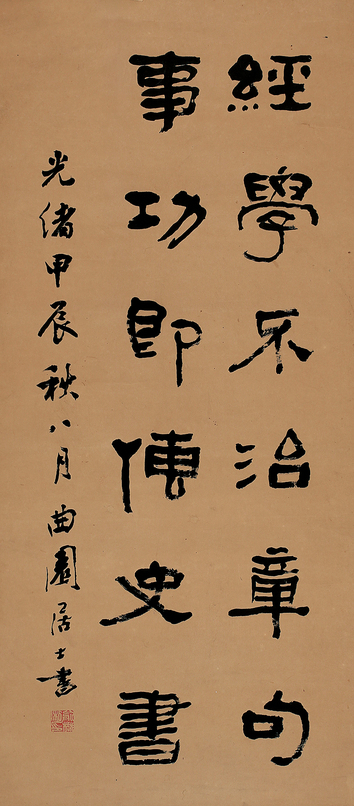 經學不治章句
事功即傳史書
光緒甲辰秋八月曲園居士書